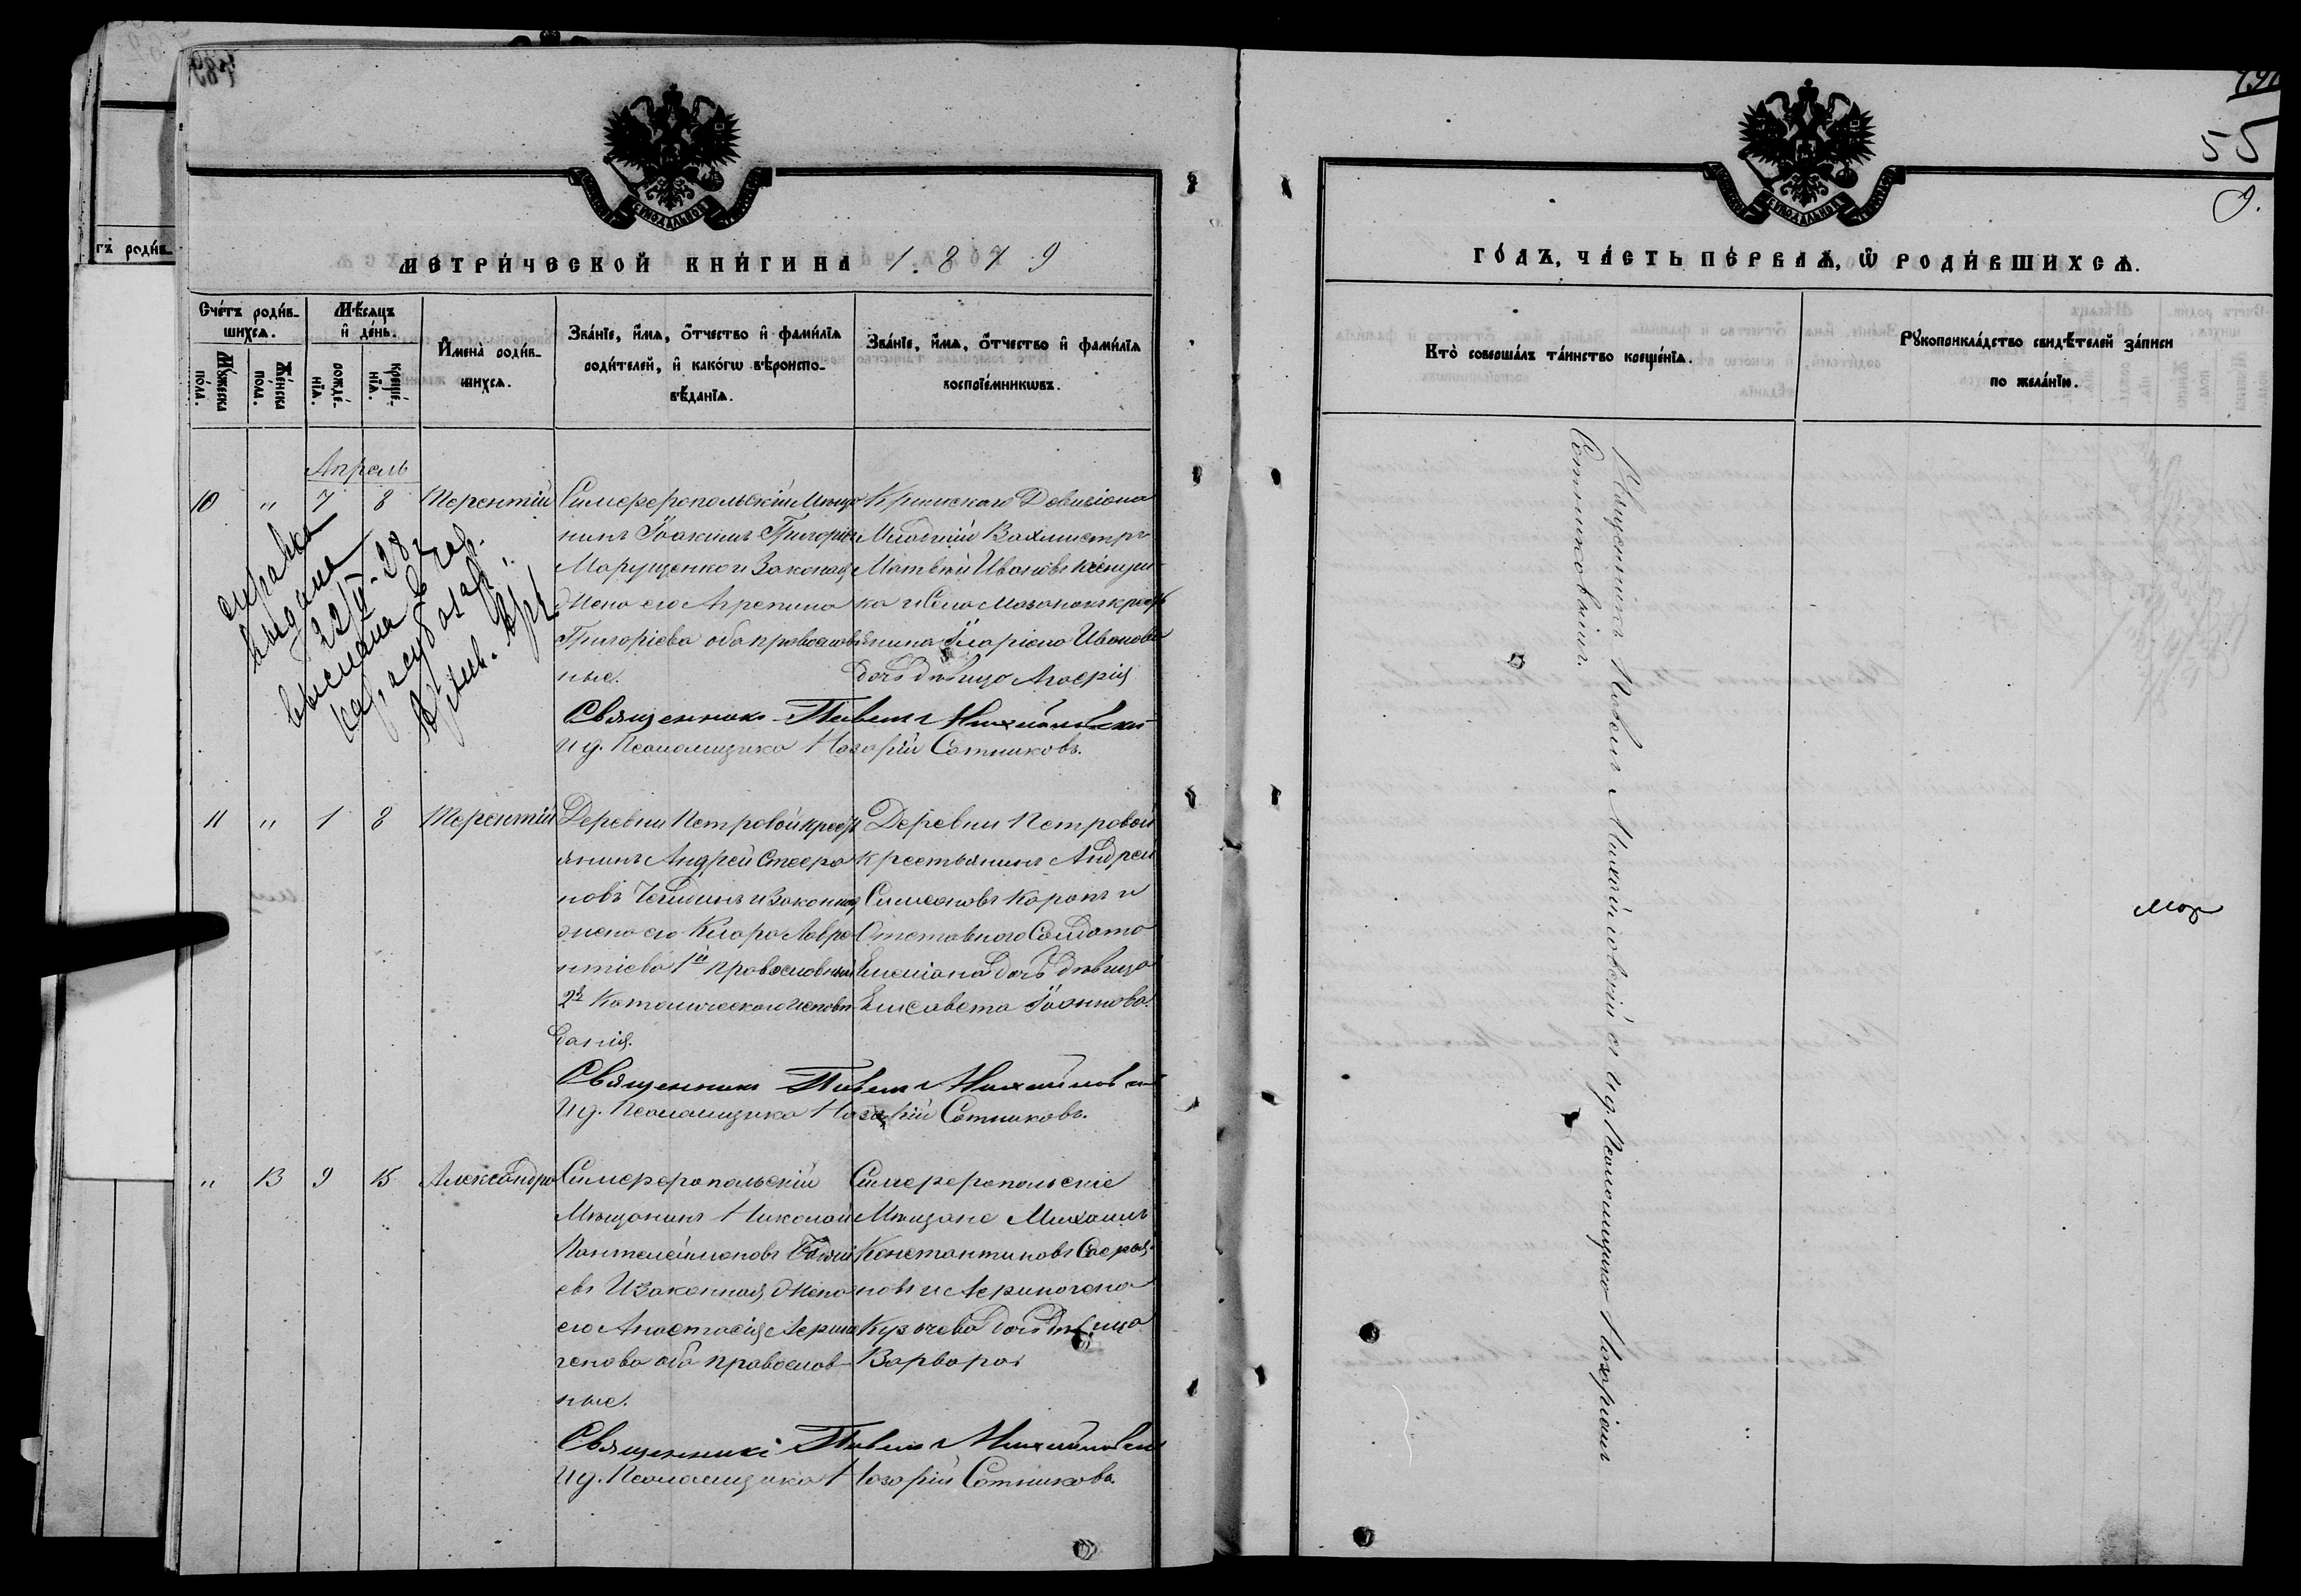 МЕТРИ́ЧЕСКОЙ КНИ́ГИ НА 1879
Сче́тъ роди́вшихсѧ.
Мꙋ́жеска по́ла.
Же́нска по́ла.
Мѣ́сѧцъ и҆ де́нь.
рожде́нїѧ.
креще́нїѧ.
И҆мена̀ роди́вшихсѧ.
Зва́нїе, и҆́мѧ, ѻ҆́тчество и҆ фами́лїѧ
роди́телей, и҆ како́гѡ вѣроиспо-
вѣ́данїѧ.
Зва́нїе, и҆́мѧ, ѻ҆́тчество и҆ фами́лїѧ
воспрїе́мникѡвъ.
Апрель
10 " 7 8 Терентій
Симферопольскій Мѣща-
нинъ Іоакимъ Григоріевъ
Марущенко и Законная
Жена его Агрепина
Григоріева оба православ-
ные.
Крымскаго Девизіона
Младшій Вахмистръ
Матвѣй Ивановъ
ка и Села Мазанокъ крест
янина Иларіона Иванова
дочь дѣвица
справка
выдана
Священникъ Павелъ Михайловскій
И д. Псаломщика Назарій Сотниковъ.
11 " 1 8 Терентій
Деревни Петровой крест
янинъ Андрей Стефа
новъ и Законная
жена его Клара Лавре
нтіева 1й православный
2я Католическаго исповѣ-
данія.
Деревни Петровой
крестьянинъ Андрей
Симеоновъ Каропъ и
Отставнаго Солдата
Емеліана дочь дѣвица
Елисавета Іоаннова.
Священникъ Павелъ Михайловскій
И д. Псаломщика Назарій Сотниковъ.
" 13 9 15 Александра
Симферопольскій
Мѣщанинъ Николай
Пантелеимоновъ
евъ И Законная Жена
его Анастасія
генова оба православ-
ные.
Симферопольскіе
Мѣщане Михаилъ
Константиновъ Сафья-
новъ и Афиногена
дочь дѣвица
Варвара
Священникъ Павелъ Михайловскій
И д. Псаломщика Назарій Сотниковъ.
55
9.
ГО́ДЪ, ЧА́СТЬ ПЕ́РВАѦ, Ѡ҆ РОДИ́ВШИХСѦ.
Кто̀ соверша́лъ та́инство креще́нїѧ.
Рꙋкоприкла́дство свидѣ́телей за́писи
по жела́нїю.
Священникъ Павелъ Михайловскій съ и д. Псаломщика Назаріемъ
Сотниковымъ.